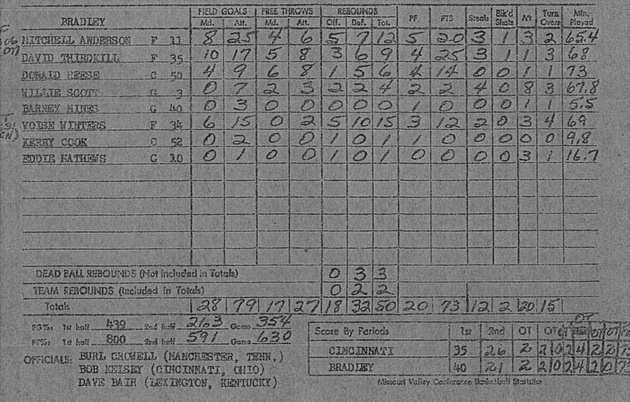 FIELD GOALS FREE THROWS REBOUNDS Blk'd Turn Min.
BRADLEY Md. Att. Md. Att. Off. Def. Tot. PF PTS Steals Shots A't Overs Played
MITCHELL ANDERSON F 11 8 25 4 6 5 7 12 5 20 3 1 3 2 65.4
DAVID THIRDKILL F 35 10 17 5 8 3 6 9 4 25 3 1 1 3 68
DONALD REESE C 50 4 9 6 8 1 5 6 4 14 0 0 1 1 73
WILLIE SCOTT G 3 0 7 2 3 2 2 4 2 2 4 0 8 3 67.8
BARNEY MINES G 40 0 3 0 0 0 0 0 1 0 0 0 1 1 5.5
VOISE WINTERS F 34 6 15 0 2 5 10 15 3 12 2 0 3 4 69
KERRY COOK C 52 0 2 0 0 1 0 1 1 0 0 0 0 0 9.8
EDDIE MATHEWS G 10 0 1 0 0 1 0 1 0 0 0 0 3 1 16.7
DEAD BALL REBOUNDS (Not included in Totals) 0 3 3
TEAM REBOUNDS (Included in Totals) 0 2 2
Totals 28 79 17 27 18 32 50 20 73 12 2 20 15
FG%: 1st half .439 2nd half .263 Game .354
FT%: 1st half .800 2nd half .591 Game .630
Score By Periods 1st 2nd OT OT OT OT OT
CINCINNATI 35 26 2 2 0 2 4 2 2 75
BRADLEY 40 21 2 2 0 2 4 2 0 73
OFFICIALS: BURL CROWELL (MANCHESTER, TENN.)
BOB KELSEY (CINCINNATI, OHIO)
DAVE BAIR (LEXINGTON, KENTUCKY)
Missouri Valley Conference Basketball Statistics